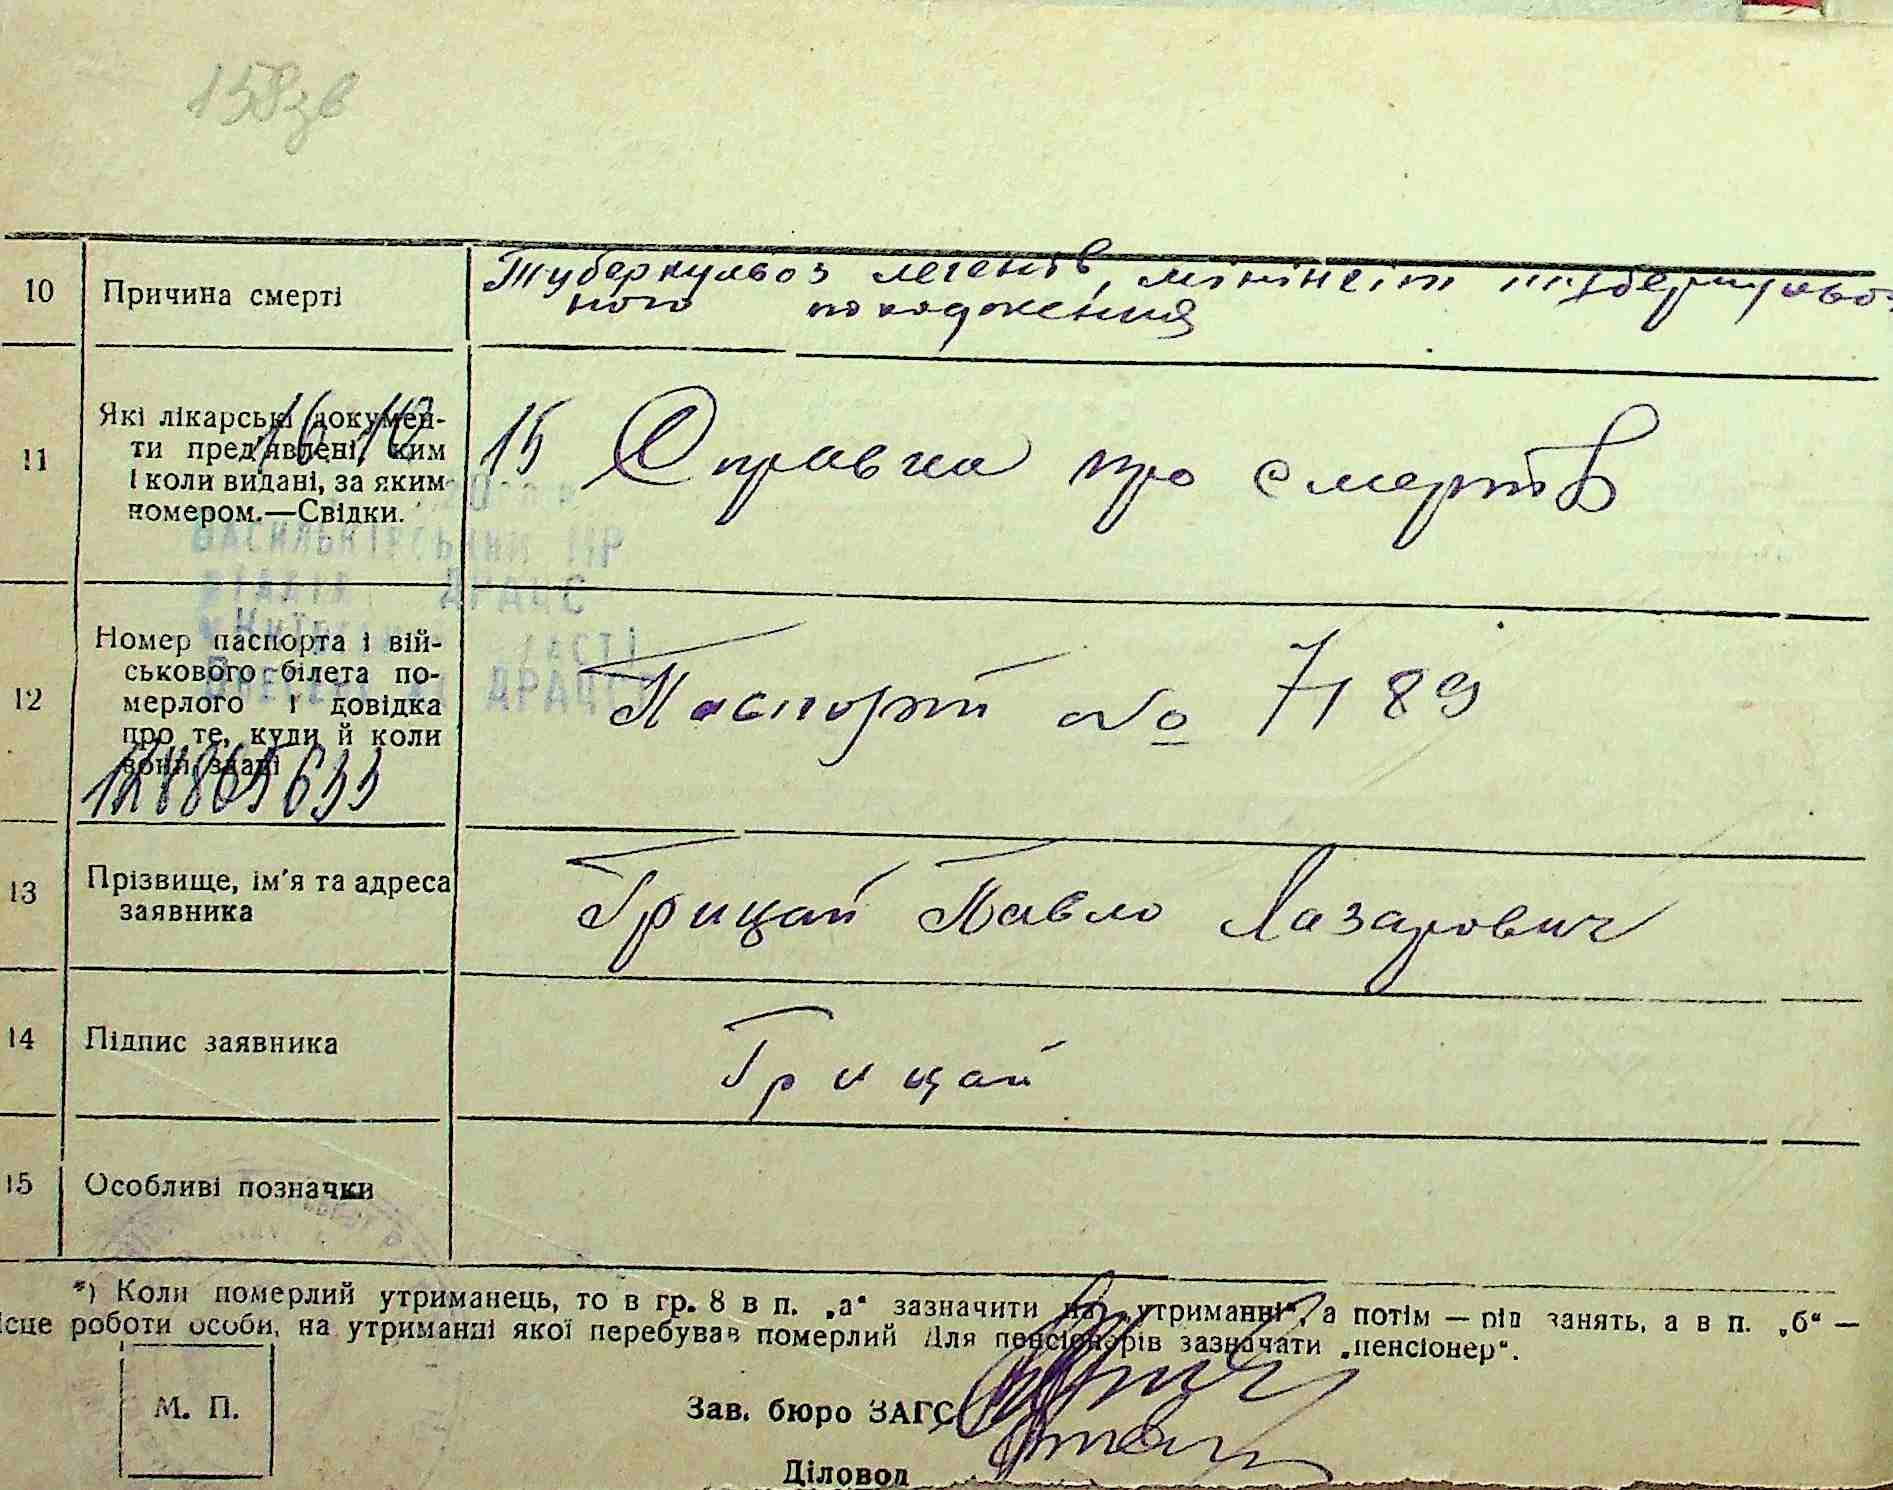 158зв
10 Причина смерті Туберкульоз легенів, мінінгіт туберкульоз-
ного походження
11 Які лікарські докумен-
ти пред'явлені, ким
і коли видані, за яким
номером.—Свідки.
16.10 15 Справка про смерть
ВАСИЛЬКІВСЬКИЙ МР
ВІДДІЛ ДРАЦС
ДРАЦС
12 Номер паспорта і вій-
ськового білета по-
мерлого і довідка
про те, куди й коли
вони здані
Паспорт № 7189
13 Прізвище, ім'я та адреса
заявника
Грицай Павло Лазарович
14 Підпис заявника Грицай
15 Особливі позначки
*) Коли померлий утриманець, то в гр. 8 в п. „а“ зазначити на „утриманні“, а потім — рід занять, а в п. „б“ —
ісце роботи особи, на утриманні якої перебував померлий Для пенсіонерів зазначати „пенсіонер“.
М. П.
Зав. бюро ЗАГС
Діловод